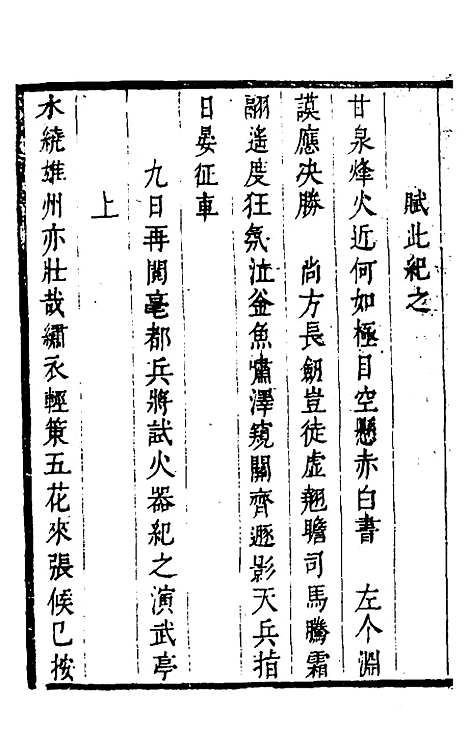 賦此紀之
甘泉烽火近何如極目空懸赤白書　左个淵
謨應决勝　尚方長劒豈徒虛翹瞻司馬騰霜
翮遙度狂氛泣釜魚嘯澤窺關齊遯影天兵指
日晏征車
九日再閱亳都兵將試火器紀之演武亭
上
水繞雄州亦壯哉繡衣輕策五花來張候已按